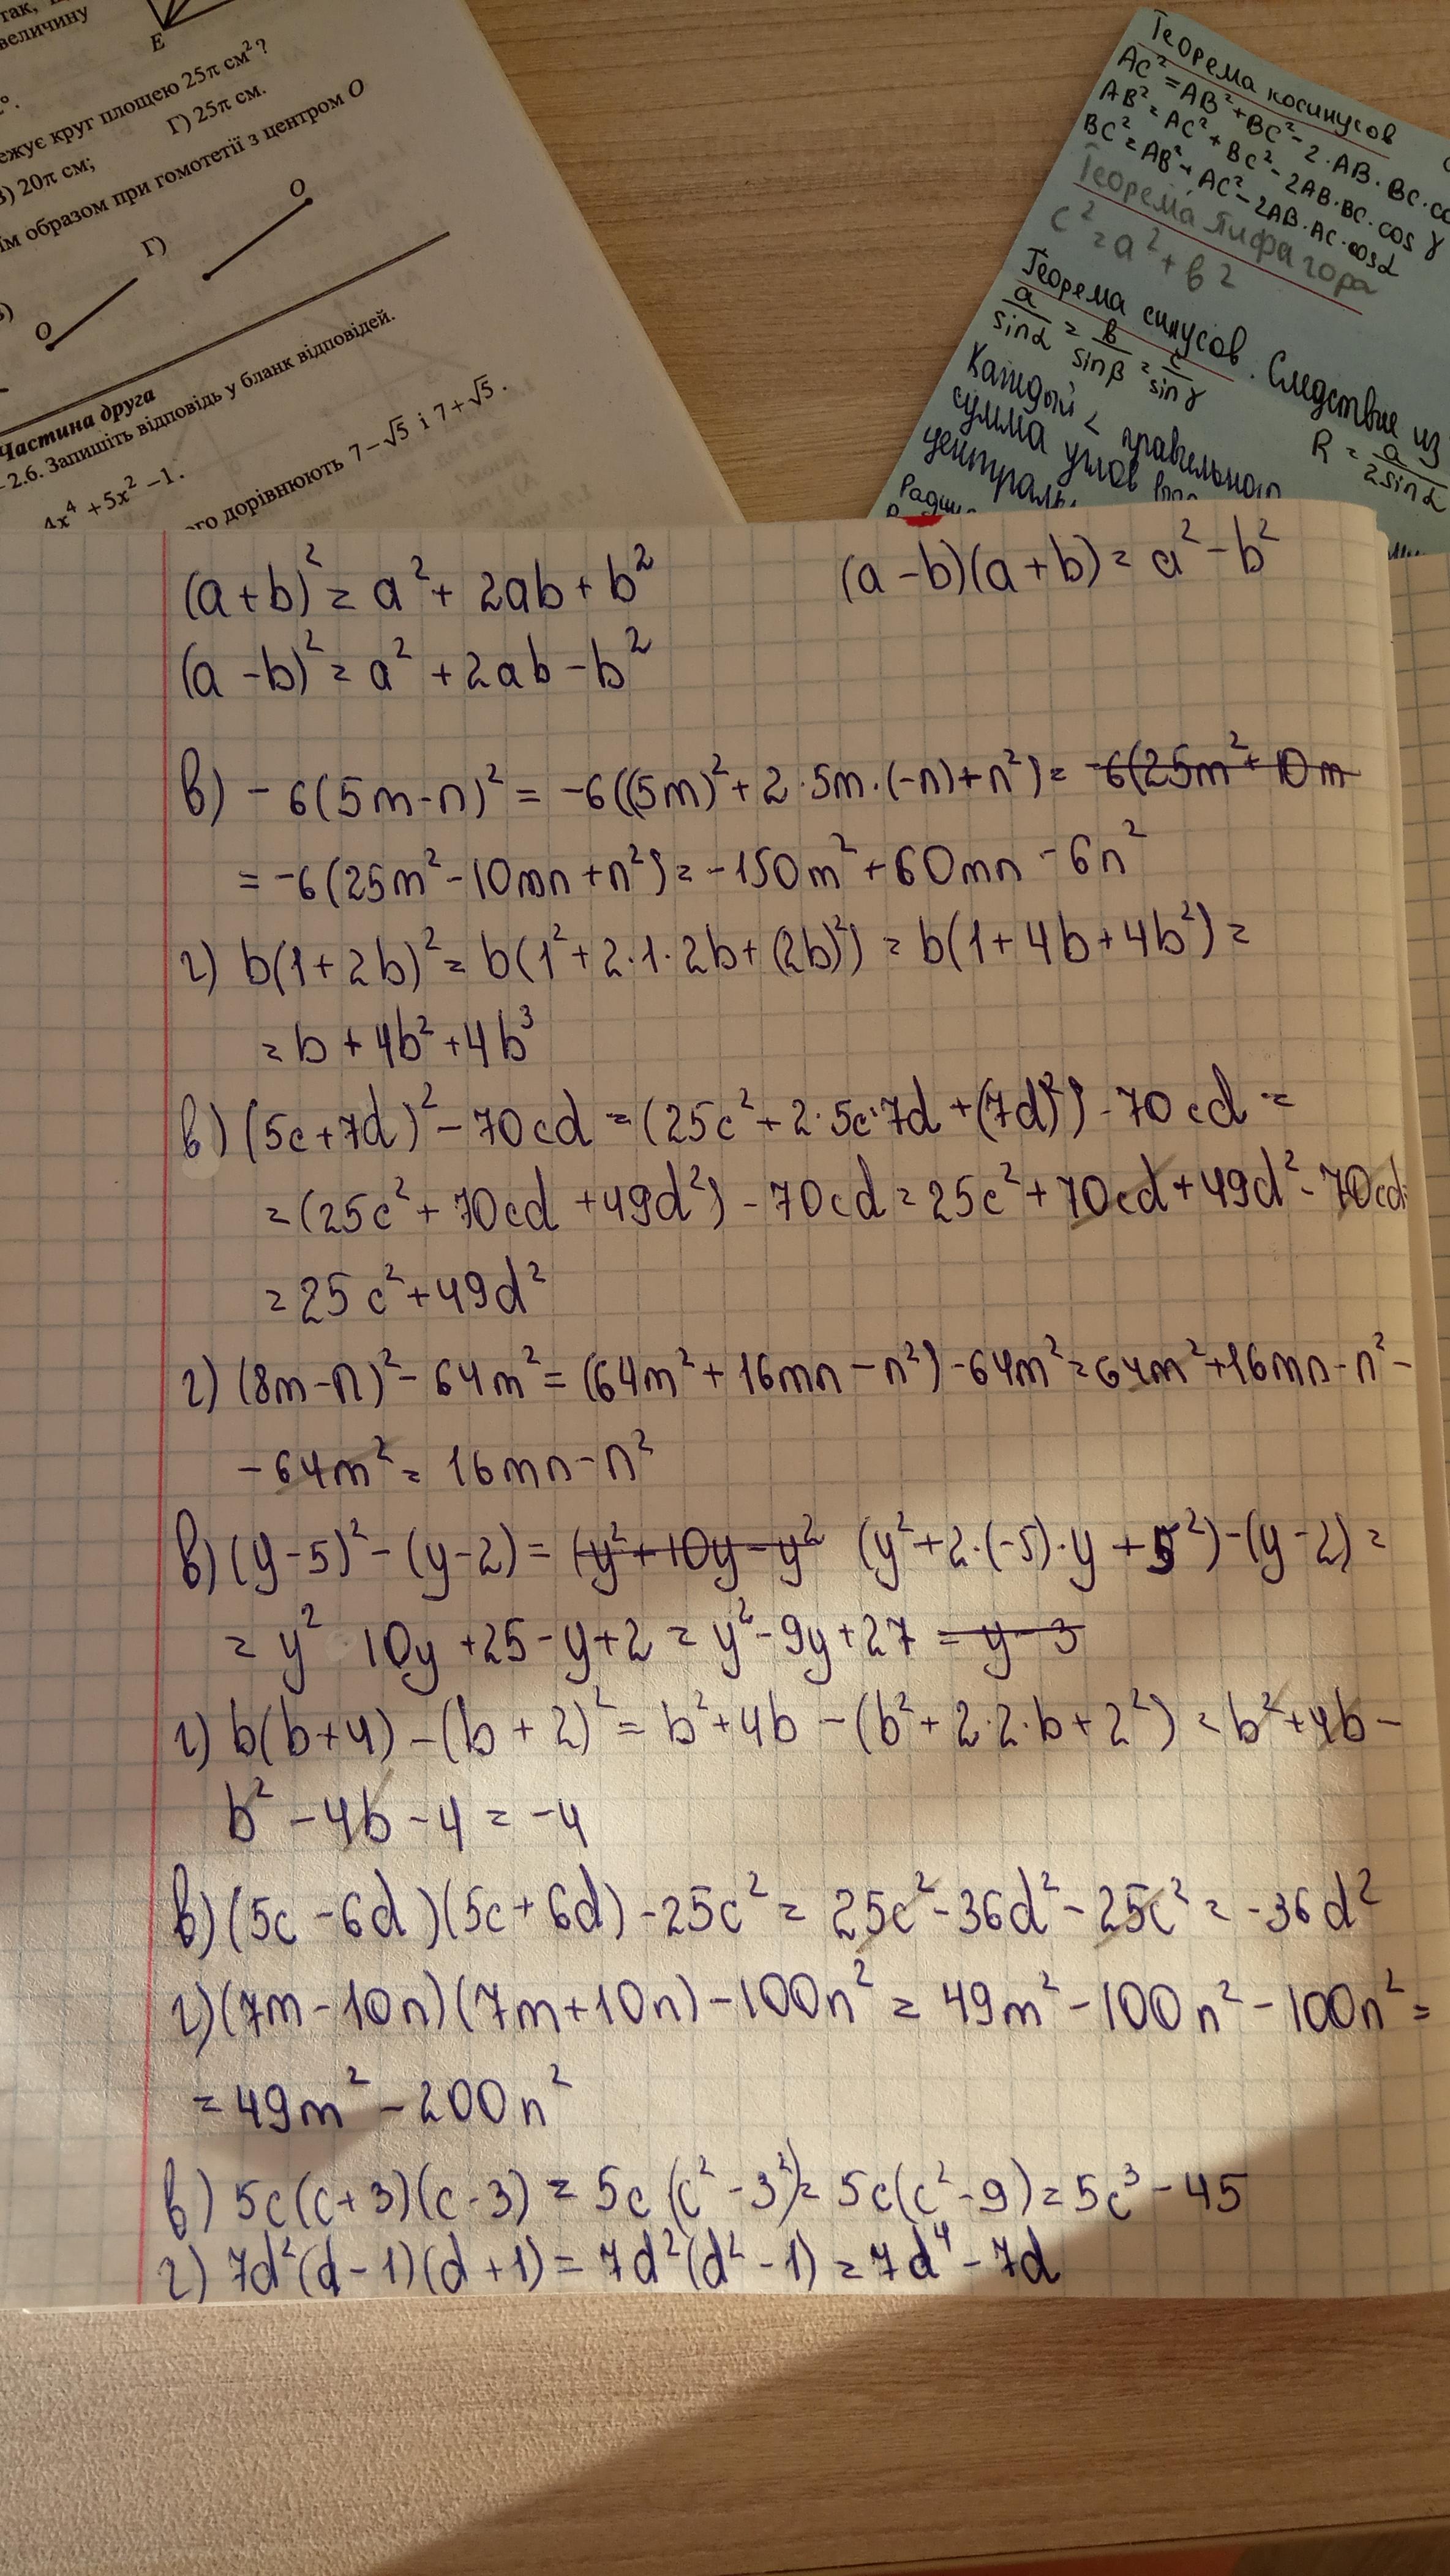 так,
величину
E
ежує круг площею 25π см²?
В) 20π см;
Г) 25π см.
їм образом при гомотетії з центром O
O
Г)
O
Частина друга
-2.6. Запишіть відповідь у бланк відповідей.
4x⁴ + 5x² − 1.
ого дорівнюють 7 − √5 і 7 + √5.
Теорема косинусов
AC² = AB² + BC² - 2·AB·BC·co
AB² = AC² + BC² - 2AB·BC·cos γ
BC² = AB² + AC² - 2AB·AC·cosα
Теорема Пифагора
c² = a² + b²
Теорема синусов. Следствие из
a/sinα = b/sinβ = c/sinγ
R = a/2sinα
Каждый < правильного
сумма углов
централь
Радиу
(a+b)² = a² + 2ab + b²
(a-b)(a+b) = a² - b²
(a-b)² = a² + 2ab - b²
в) -6(5m-n)² = -6((5m)² + 2·5m·(-n) + n²) = -6(25m² + 10m
= -6(25m² - 10mn + n²) = -150m² + 60mn - 6n²
г) b(1+2b)² = b(1² + 2·1·2b + (2b)²) = b(1+4b+4b²) =
= b + 4b² + 4b³
в) (5c+7d)² - 70cd = (25c² + 2·5c·7d + (7d)²) - 70cd =
= (25c² + 70cd + 49d²) - 70cd = 25c² + 70cd + 49d² - 70cd=
= 25c² + 49d²
г) (8m-n)² - 64m² = (64m² + 16mn - n²) - 64m² = 64m² + 16mn - n² -
- 64m² = 16mn - n²
в) (y-5)² - (y-2) = (y² + 10y - y² (y² + 2·(-5)·y + 5²) - (y-2) =
= y² 10y + 25 - y + 2 = y² - 9y + 27 = y - 3
г) b(b+4) - (b+2)² = b² + 4b - (b² + 2·2·b + 2²) = b² + 4b -
b² - 4b - 4 = -4
в) (5c-6d)(5c+6d) - 25c² = 25c² - 36d² - 25c² = -36d²
г) (7m-10n)(7m+10n) - 100n² = 49m² - 100n² - 100n² =
= 49m² - 200n²
в) 5c(c+3)(c-3) = 5c(c² - 3²) = 5c(c² - 9) = 5c³ - 45
г) 7d²(d-1)(d+1) = 7d²(d² - 1) = 7d⁴ - 7d